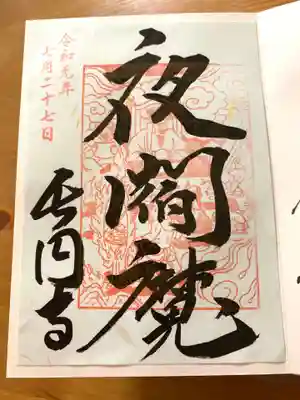 夜閻魔
令和元年
七月二十七日
長円寺